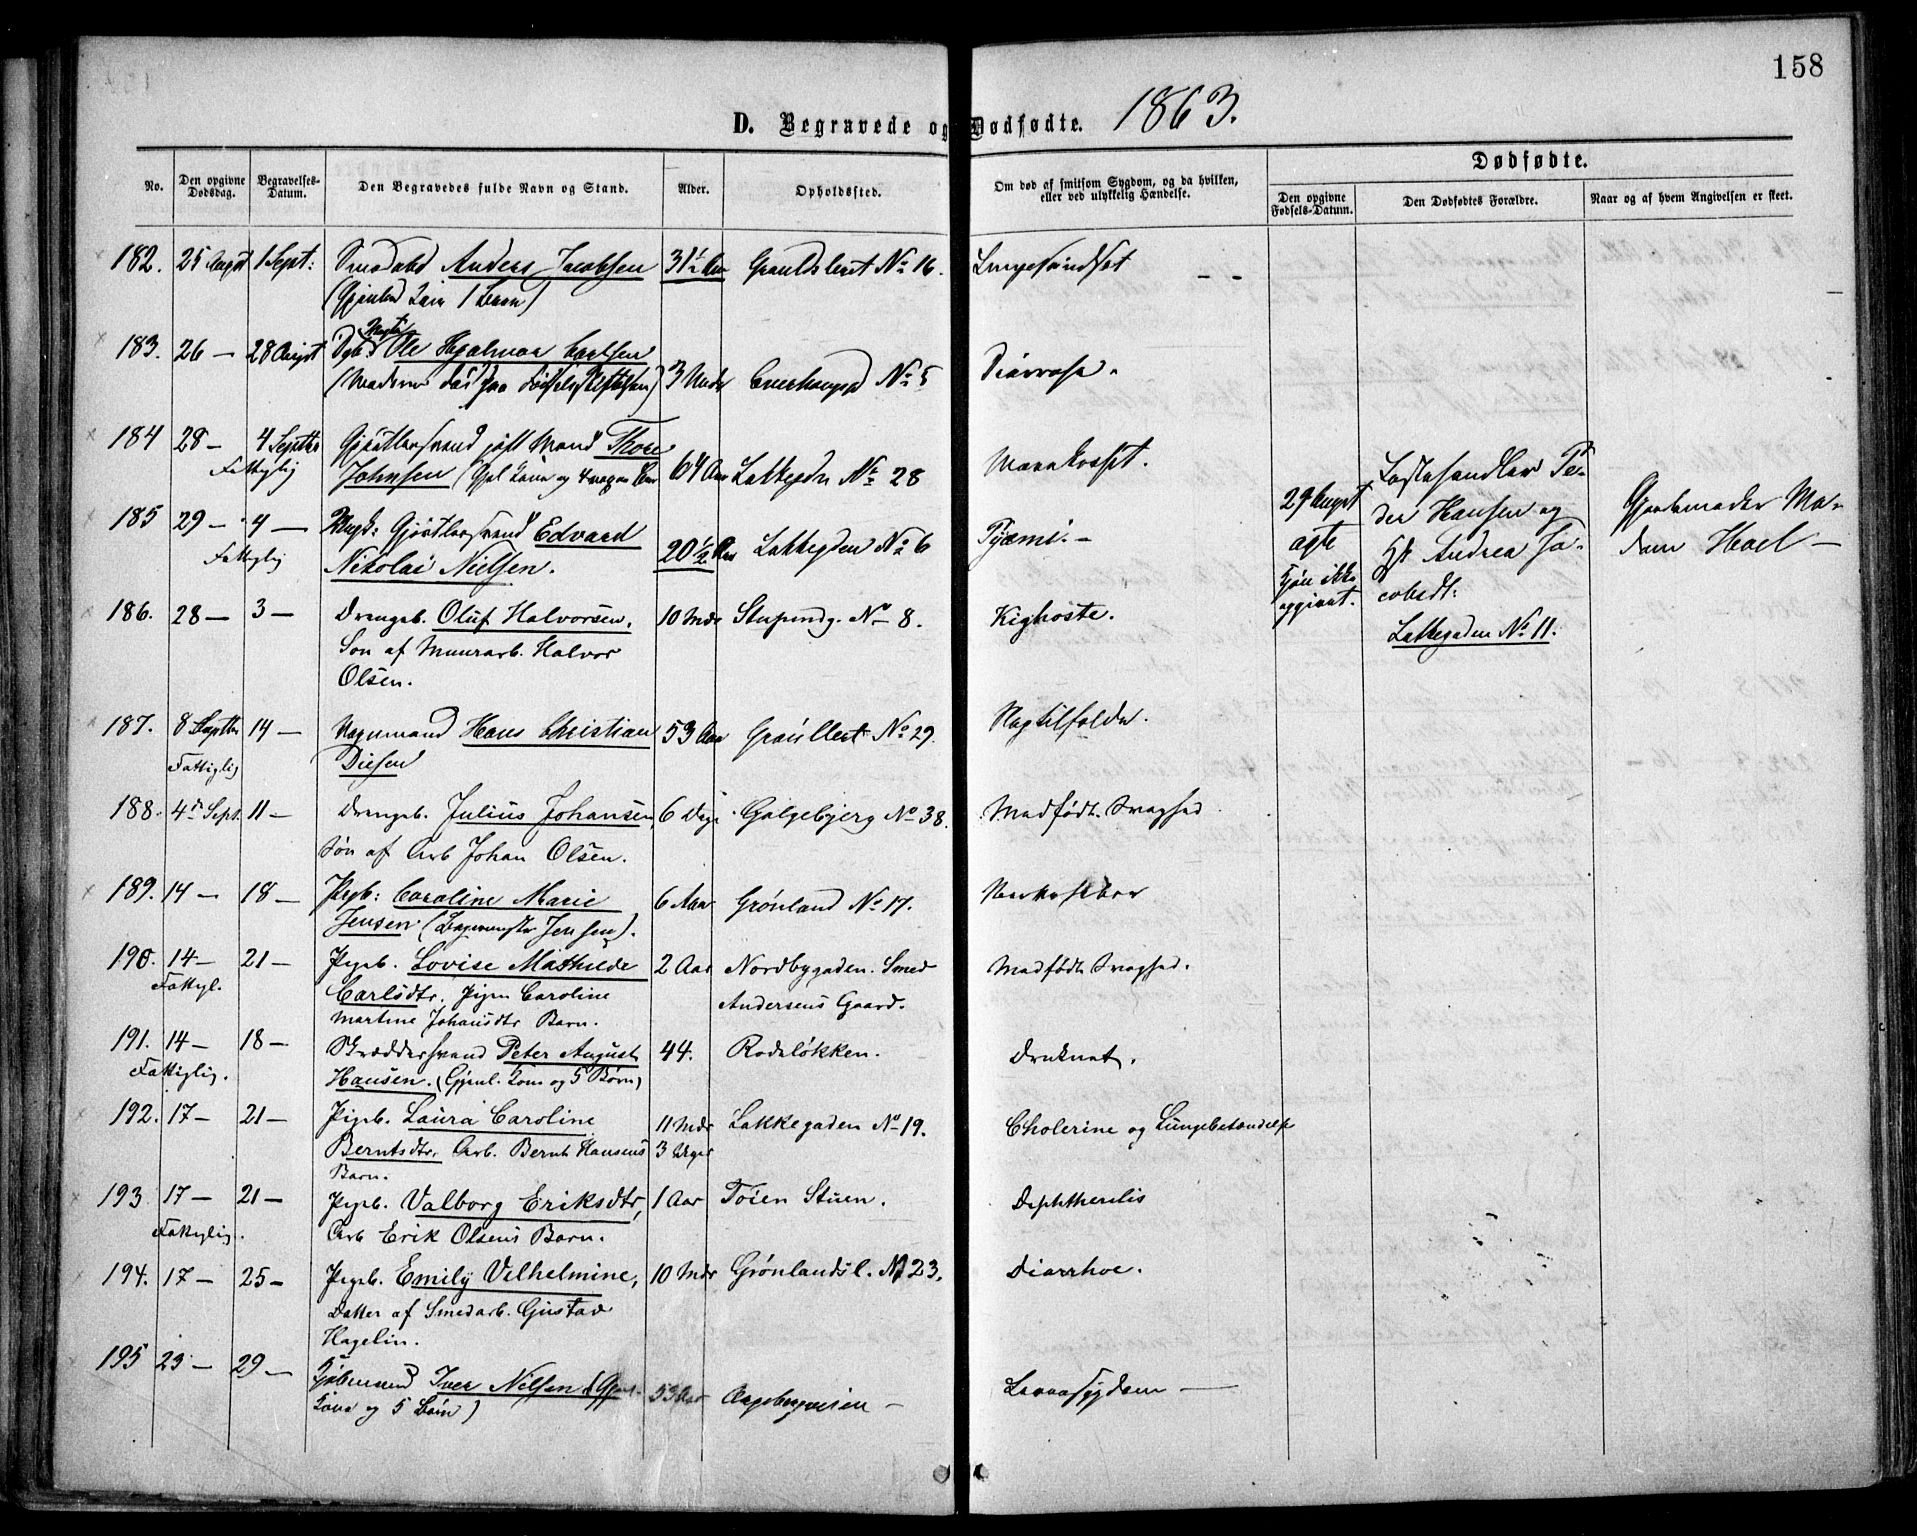 158
D. Begravede og Dødfødte. 1863.
No.
Den opgivne Dødsdag.
Begravelses-Datum.
Den Begravedes fulde Navn og Stand.
Alder.
Opholdssted.
Om død af smitsom Sygdom, og da hvilken, eller ved ulykkelig Hændelse.
Dødfødte.
Den opgivne Fødsels-Datum.
Den Dødfødtes Forældre.
Naar og af hvem Angivelsen er skeet.
182. 25 August 1 Sept: Anders Jacobsen 31½ Aar No 16.
183. 26 — 28 August Ole Hjalmar Carlsen 3 Mndr No 5 Diarrhse.
184 28 — 4 Septbr Thore
Fattiglig Johnsen 64 Aar Lakkegdn No 28
185 29 — 4 — Edvard
Fattiglig Nikolai Nielsen. 20½ Aar Lakkegden No 6 Pyæmi. —
29 August
ægte
Kjøn ikke
opgivet.
der Hansen og
Andrea Ja-
cobsdt:
Lakkegaden No 11.
Gjordemoder Ma-
dam Hoel —
186. 28 — 3 — Drengeb. Oluf Halvorsen. 10 Mdr No 8. Kighoste.
Søn af Murarb. Halvor
Olsen.
187. 8 Septbr 14 — Hans Christian 53 Aar No 29.
Fattiglig
188. 4de Sept. 11 — Drengeb. Julius Johansen, 6 Dage Galgebjerg No 38. Medfødt Svaghed
Søn af Arb Johan Olsen.
189. 14 — 18 — Pigeb: Caroline Marie 6 Aar Grønland No 17. Nervefeber
Jensen
190. 14 — 21 — Pigeb. Lovise Mathilde 2 Aar Nordbygaden. Smed Medfødt Svaghed.
Fattigl. Carlsdtr. Pigen Caroline Andersens Gaard.
Martine Johansdtr Barn.
191. 14 — 18 — Skræddersvend Peter August 44. Rodeløkken. Druknet.
Fattiglig. Hansen. (Gjenl. Kone og 5 Børn)
192. 17 — 21 — Pigeb. Laura Caroline 11 Mdr Lakkegaden No 19. Cholerine og Lungebetændelse
Berntsdtr. Arb. Bernt Hansens 3 Uger
Barn.
193 17 — 21 — Pigeb. Valborg Eriksdtr, 1 Aar Tøien Stuen. Diphtheritis
Fattiglig. Arb Erik Olsens Barn.
194. 17 — 25 — Pigeb. Emily Vilhelmine, 10 Mdr Grønlandsl. No 23. Diarrhoe.
Datter af Smedarb. Gustav
Hagelin.
195 23 — 29 — Iver Nilsen (Gjenl. 53 Aar
Kone og 5 Børn)